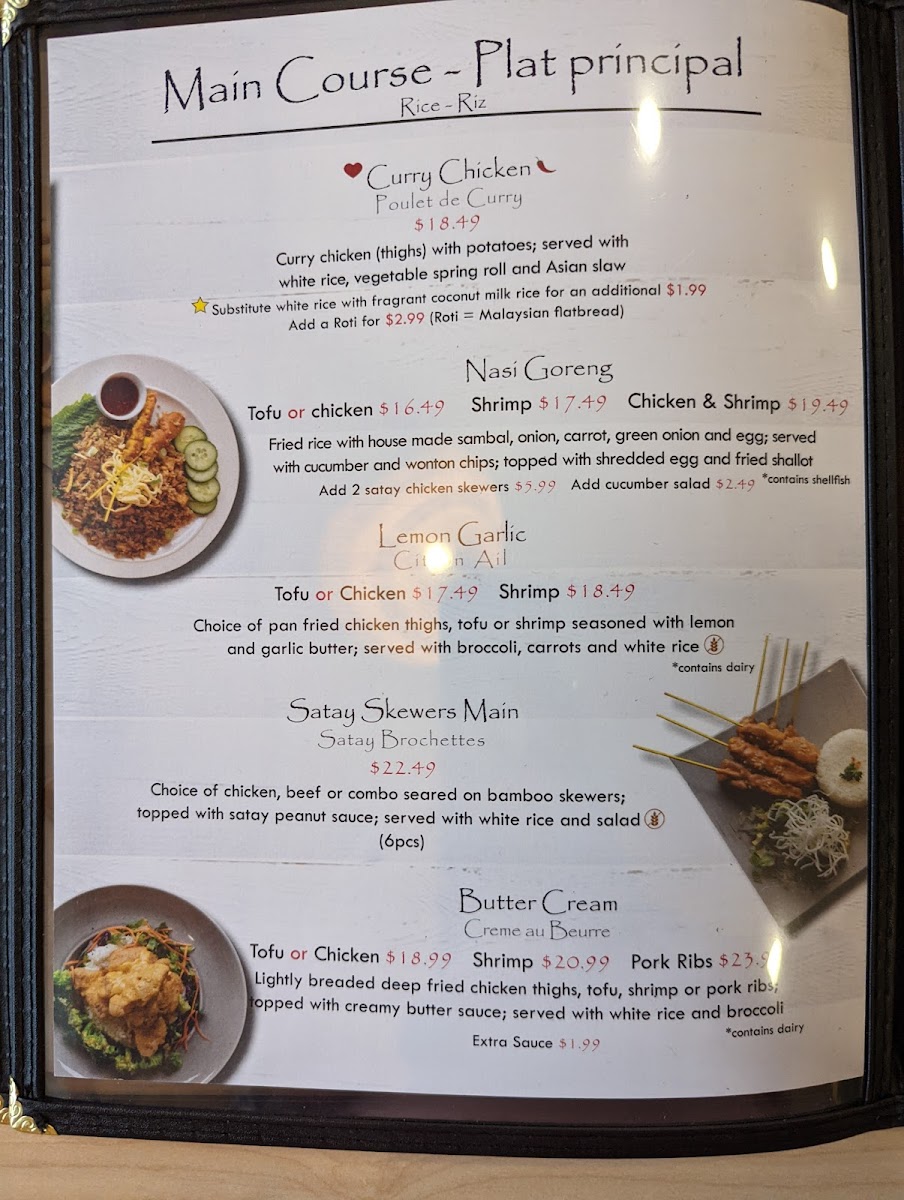 Main Course - Plat principal
Rice - Riz
Curry Chicken
Poulet de Curry
$18.49
Curry chicken (thighs) with potatoes; served with
white rice, vegetable spring roll and Asian slaw
Substitute white rice with fragrant coconut milk rice for an additional $1.99
Add a Roti for $2.99 (Roti = Malaysian flatbread)
Nasi Goreng
Tofu or chicken $16.49 Shrimp $17.49 Chicken & Shrimp $19.49
Fried rice with house made sambal, onion, carrot, green onion and egg; served
with cucumber and wonton chips; topped with shredded egg and fried shallot
Add 2 satay chicken skewers $5.99 Add cucumber salad $2.49 *contains shellfish
Lemon Garlic
Ail
Tofu or Chicken $17.49 Shrimp $18.49
Choice of pan fried chicken thighs, tofu or shrimp seasoned with lemon
and garlic butter; served with broccoli, carrots and white rice
*contains dairy
Satay Skewers Main
Satay Brochettes
$22.49
Choice of chicken, beef or combo seared on bamboo skewers;
topped with satay peanut sauce; served with white rice and salad
(6pcs)
Butter Cream
Creme au Beurre
Tofu or Chicken $18.99 Shrimp $20.99 Pork Ribs
Lightly breaded deep fried chicken thighs, tofu, shrimp or pork ribs;
topped with creamy butter sauce; served with white rice and broccoli
*contains dairy
Extra Sauce $1.99